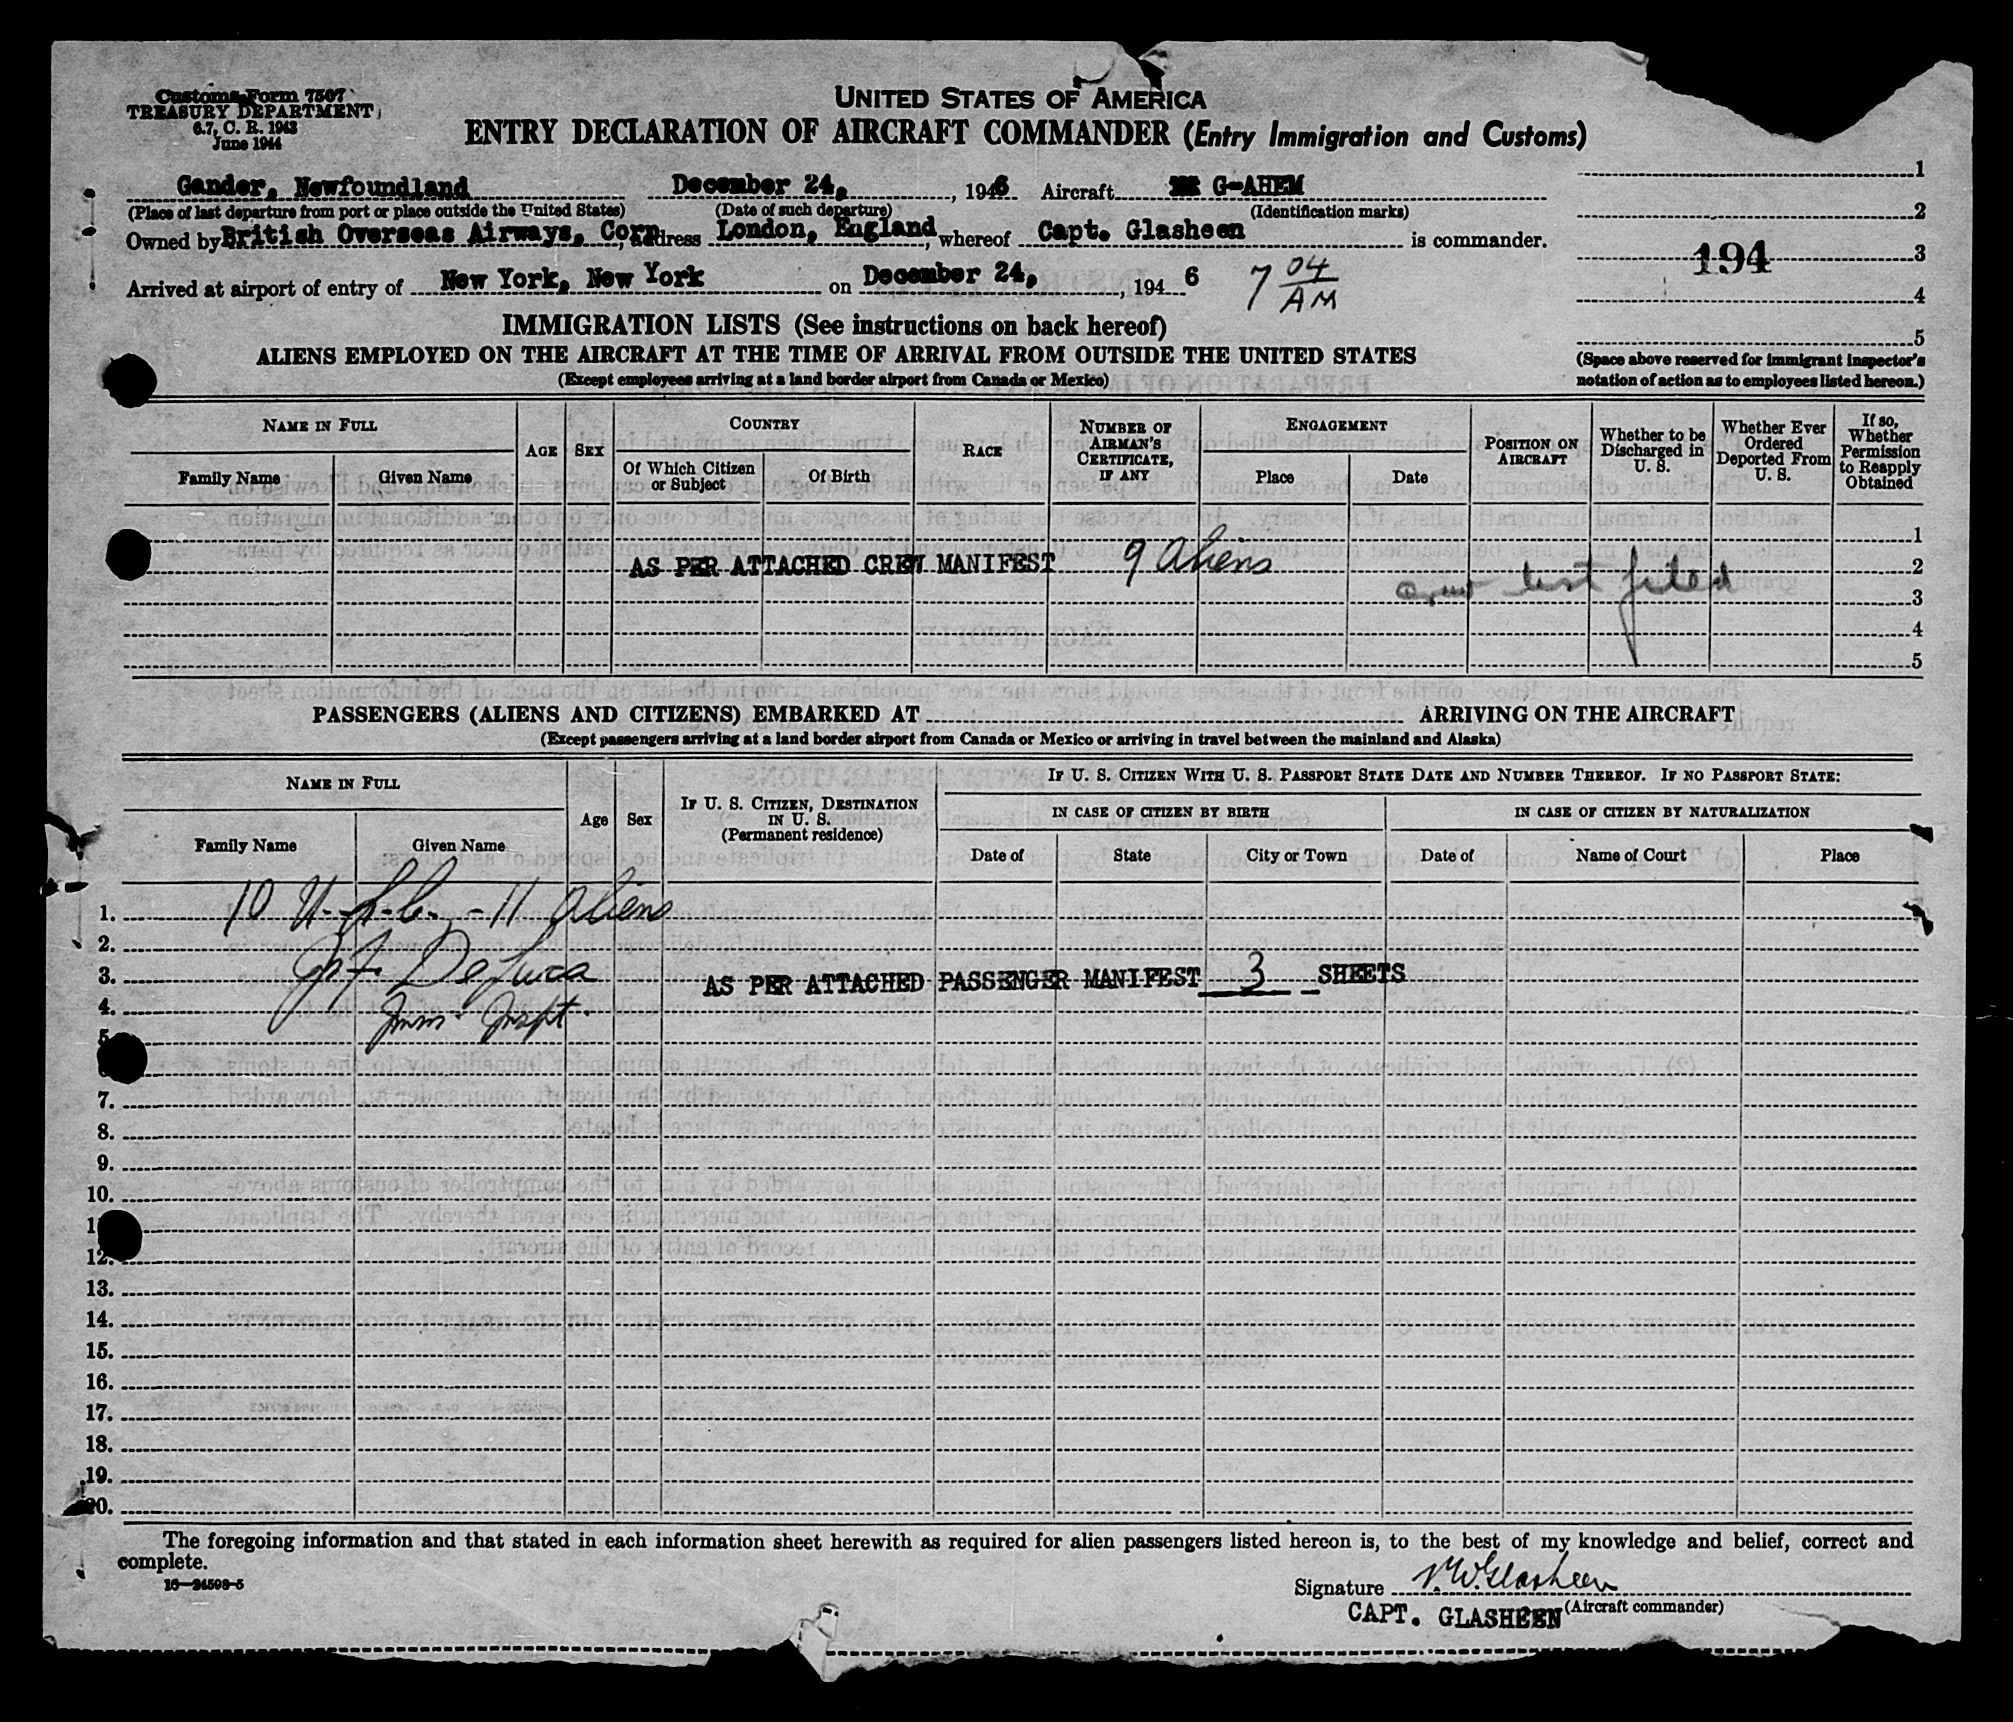 Customs Form 7507
TREASURY DEPARTMENT
6.7, C. R. 1943
June 1944
UNITED STATES OF AMERICA
ENTRY DECLARATION OF AIRCRAFT COMMANDER (Entry Immigration and Customs)
Gander, Newfoundland December 24, 1946 Aircraft G-AHEM
(Place of last departure from port or place outside the United States) (Date of such departure) (Identification marks)
Owned by British Overseas Airways, Corp, address London, England, whereof Capt. Glasheen is commander.
Arrived at airport of entry of New York, New York on December 24, 1946 7 04 AM
1
2
194 3
4
5
(Space above reserved for immigrant inspector's
notation of action as to employees listed hereon.)
IMMIGRATION LISTS (See instructions on back hereof)
ALIENS EMPLOYED ON THE AIRCRAFT AT THE TIME OF ARRIVAL FROM OUTSIDE THE UNITED STATES
(Except employees arriving at a land border airport from Canada or Mexico)
NAME IN FULL
Family Name Given Name
AGE SEX
COUNTRY
Of Which Citizen or Subject
Of Birth
RACE
NUMBER OF AIRMAN'S CERTIFICATE, IF ANY
ENGAGEMENT
Place Date
POSITION ON AIRCRAFT
Whether to be Discharged in U. S.
Whether Ever Ordered Deported From U. S.
If so, Whether Permission to Reapply Obtained
1
AS PER ATTACHED CREW MANIFEST 9 Aliens 2
crew list filed 3
4
5
PASSENGERS (ALIENS AND CITIZENS) EMBARKED AT ARRIVING ON THE AIRCRAFT
(Except passengers arriving at a land border airport from Canada or Mexico or arriving in travel between the mainland and Alaska)
NAME IN FULL
Family Name Given Name
Age Sex
IF U. S. CITIZEN, DESTINATION IN U. S.
(Permanent residence)
IF U. S. CITIZEN WITH U. S. PASSPORT STATE DATE AND NUMBER THEREOF. IF NO PASSPORT STATE:
IN CASE OF CITIZEN BY BIRTH IN CASE OF CITIZEN BY NATURALIZATION
Date of State City or Town Date of Name of Court Place
1. 10 U.S.C. - 11 Aliens
2.
3. De Luca AS PER ATTACHED PASSENGER MANIFEST 3 SHEETS
4. Imm. Inspt.
5.
7.
8.
9.
10.
12.
13.
14.
15.
16.
17.
18.
19.
20.
The foregoing information and that stated in each information sheet herewith as required for alien passengers listed hereon is, to the best of my knowledge and belief, correct and
complete.
16—24598-5
Signature Glasheen
(Aircraft commander)
CAPT. GLASHEEN